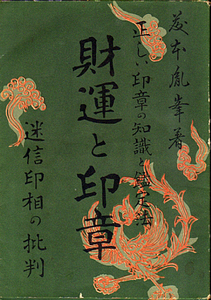 藤本胤峯著
正しい印章の知識と鑑定法
財運と印章
迷信印相の批判